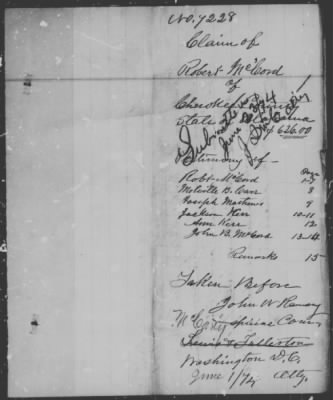 No. 7228
Claim of
Robert McCord
of
Cherokee County
State of Alabama
$626.00
Submitted
June 1874
Testimony of -
Page
Robt. McCord 1-7
Melville B. Carr 8
Joseph Mathews 9
Jackson Kerr 10-11
Ann Kerr 12
John B. McCord 13-14
Remarks 15
Taken Before
John W. Ramsey
Special Comr
Lewis & Fullerton
Washington D.C.
June 1/74 Atty.